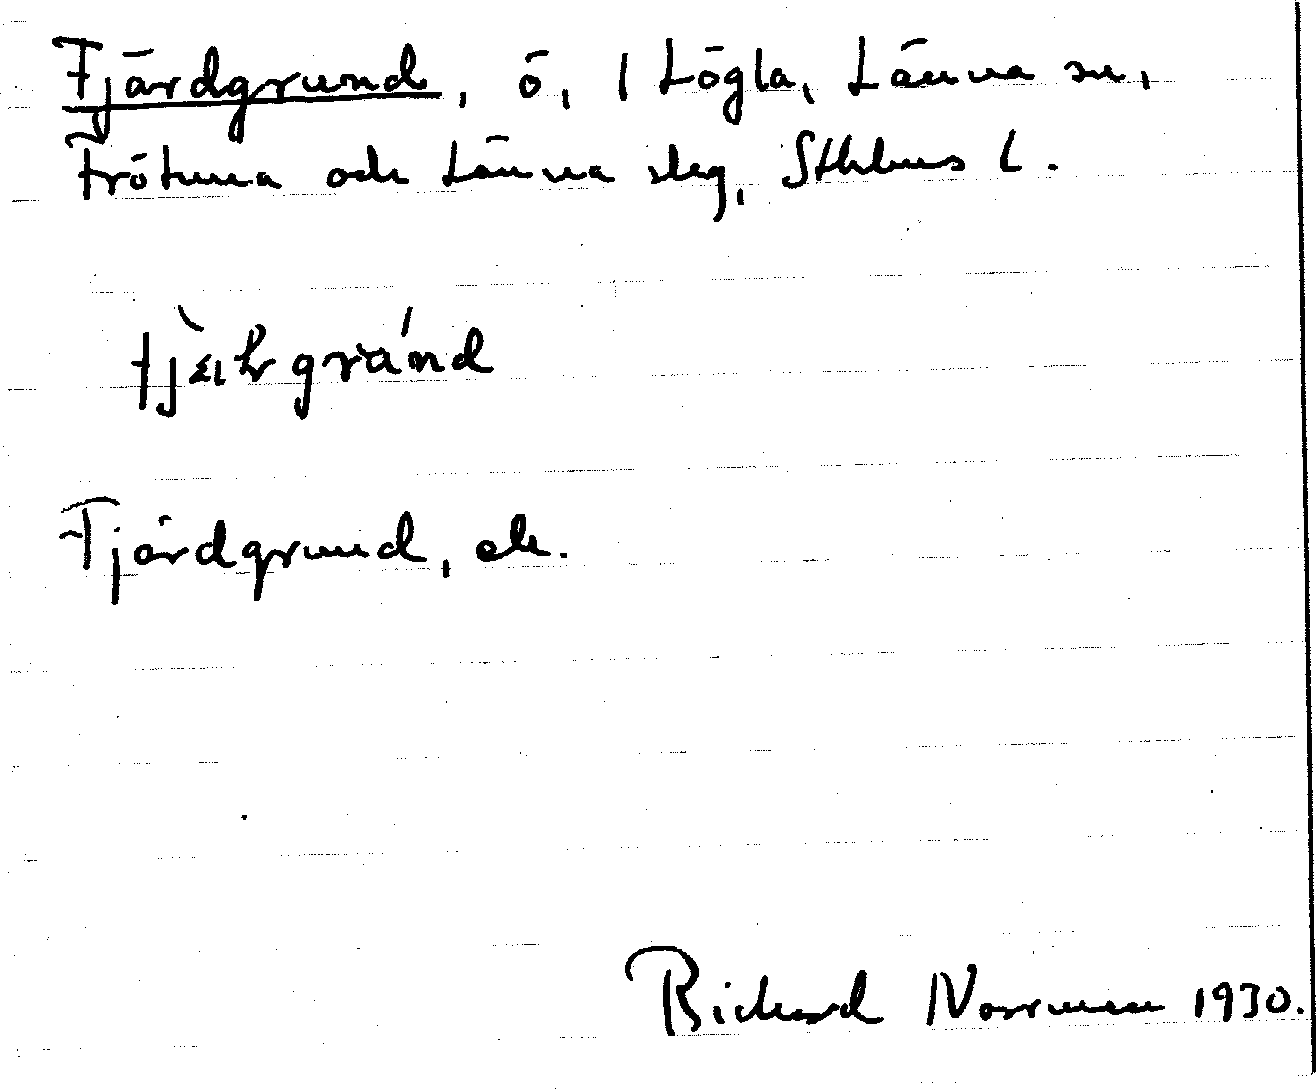 Fjärdgrund, ö, 1 Lögla, Länna sn,
Frötuna och Länna slag, Sthlms l.
Fjärdgrund, ek.
Richard Norrman 1930.